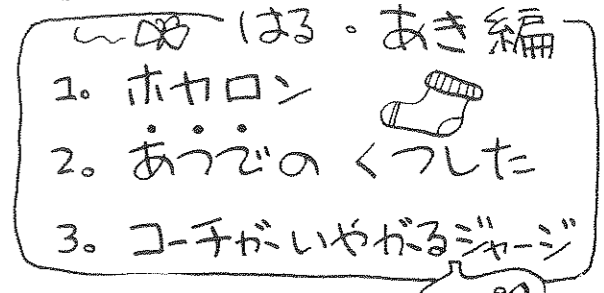 はる・あき編
1。ホカロン
2。あつでの くつした
3。コーチがいやがるジャージ